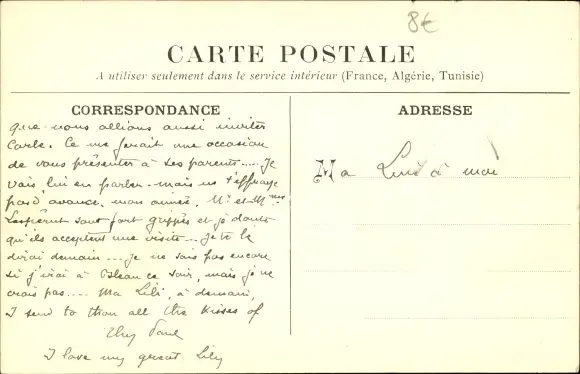 8€
CARTE POSTALE
A utiliser seulement dans le service intérieur (France, Algérie, Tunisie)
CORRESPONDANCE
que nous allions aussi inviter
Carle. Ce me serait une occasion
de vous présenter à ses parents..... Je
vais lui en parler. mais ne t'effraye
pas d'avance, mon aimée. Mr et Mme
sont fort grippés et je doute
qu'ils acceptent une visite... Je te le
dirai demain.... je ne sais pas encore
si j'irai à ce soir, mais je ne
crois pas.... Ma Lili, à demain,
I send to thou all the kisses of
thy Paul
I love my great Lily
ADRESSE
Ma à moi